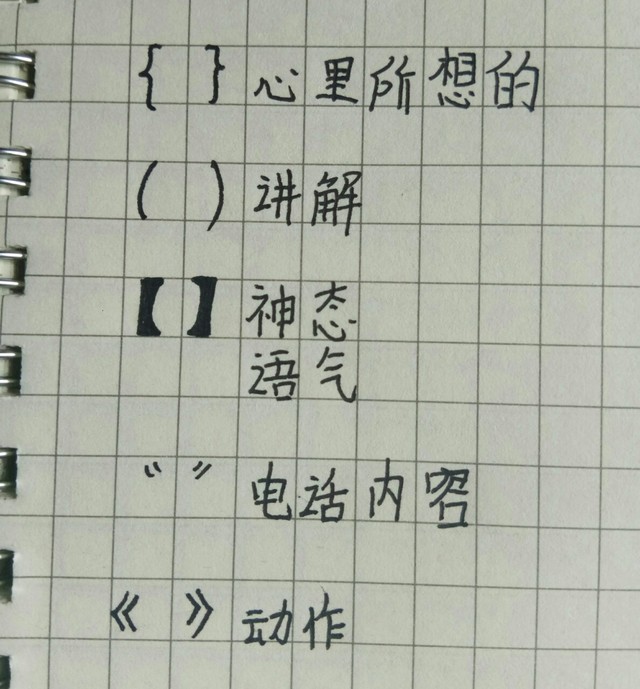 { } 心里所想的
( ) 讲解
【 】 神态
语气
“ ” 电话内容
《 》 动作